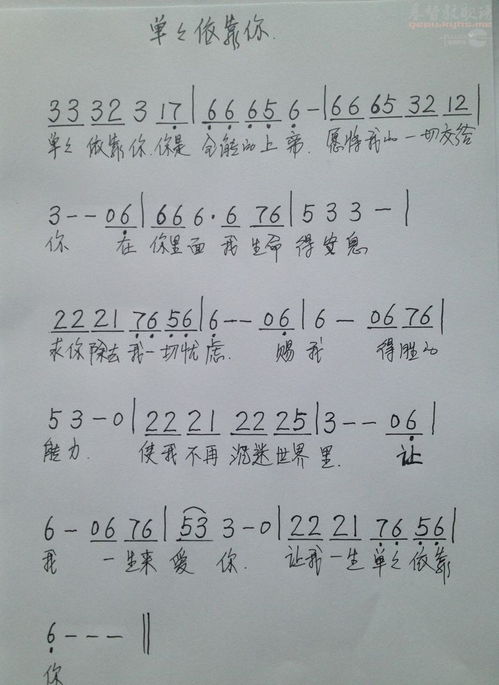 单单依靠你.
33 32 3 17|66 65 6-|66 65 32 12|
单单依靠你.你是 全能的上帝. 愿将我的一切交给
3--06|66 6·6 76|533-|
你 在 你里面 我生命 得安息
22 21 76 56|6--06|6- 06 76|
求你除去我一切忧虑. 赐 我 得胜的
53-0|22 21 22 25|3--06|
能力. 使我不再沉迷世界里. 让
6-06 76|53 3-0|22 21 76 56|
我 一生来 爱 你. 让我一生单单依靠
6---‖
你